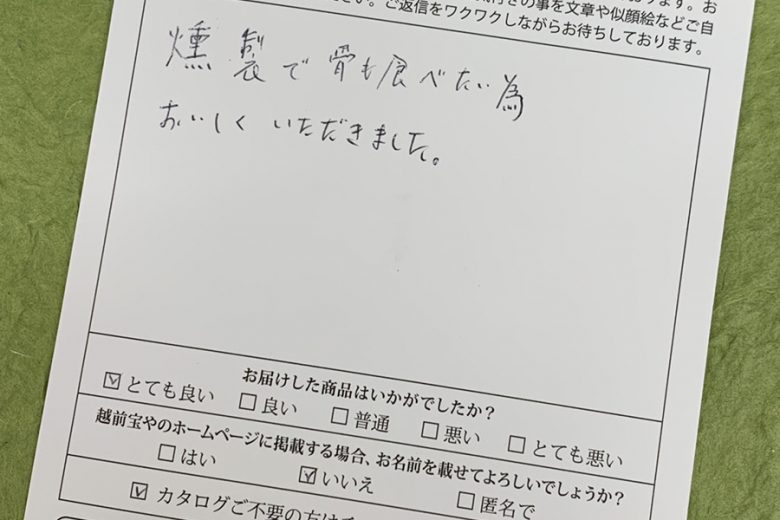 の事を文章や似顔絵などご自
さい。ご返信をワクワクしながらお待ちしております。
燻製で骨も食べたい為
おいしくいただきました。
お届けした商品はいかがでしたか?
☑とても良い □良い □普通 □悪い □とても悪い
越前宝やのホームページに掲載する場合、お名前を載せてよろしいでしょうか?
□はい ☑いいえ □匿名で
☑カタログご不要の方は